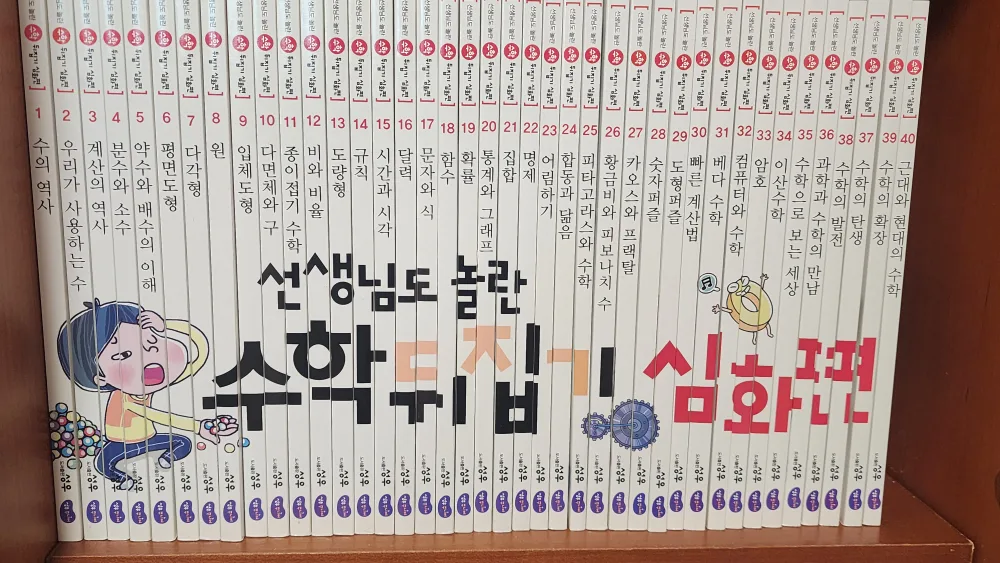 선생님도 놀란
수학 뒤집기 심화편
1 수의 역사
2 우리가 사용하는 수
3 계산의 역사
4 분수와 소수
5 약수와 배수의 이해
6 평면도형
7 다각형
8 원
9 입체도형
10 다면체와 구
11 종이접기 수학
12 비와 비율
13 도량형
14 규칙
15 시간과 시각
16 달력
17 문자와 식
18 함수
19 확률
20 통계와 그래프
21 집합
22 명제
23 어림하기
24 합동과 닮음
25 피타고라스와 수학
26 황금비와 피보나치 수
27 카오스와 프랙탈
28 숫자퍼즐
29 도형퍼즐
30 빠른 계산법
31 베다 수학
32 컴퓨터와 수학
33 암호
34 이산수학
35 수학으로 보는 세상
36 과학과 수학의 만남
38 수학의 발전
37 수학의 탄생
39 수학의 확장
40 근대와 현대의 수학